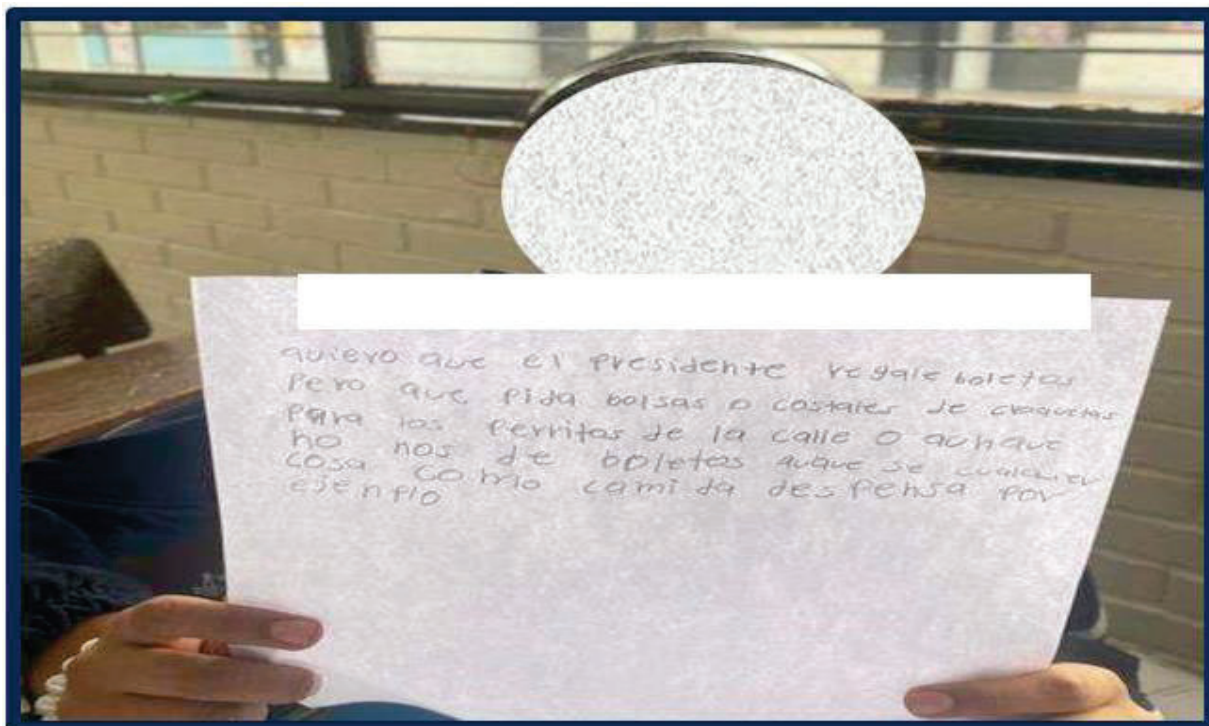 quiero que el presidente regale boletos
pero que pida bolsas o costales de craquetas
para los perritos de la calle o aunque
no nos de boletos auque se cualquier
cosa como camida despensa por
ejenplo